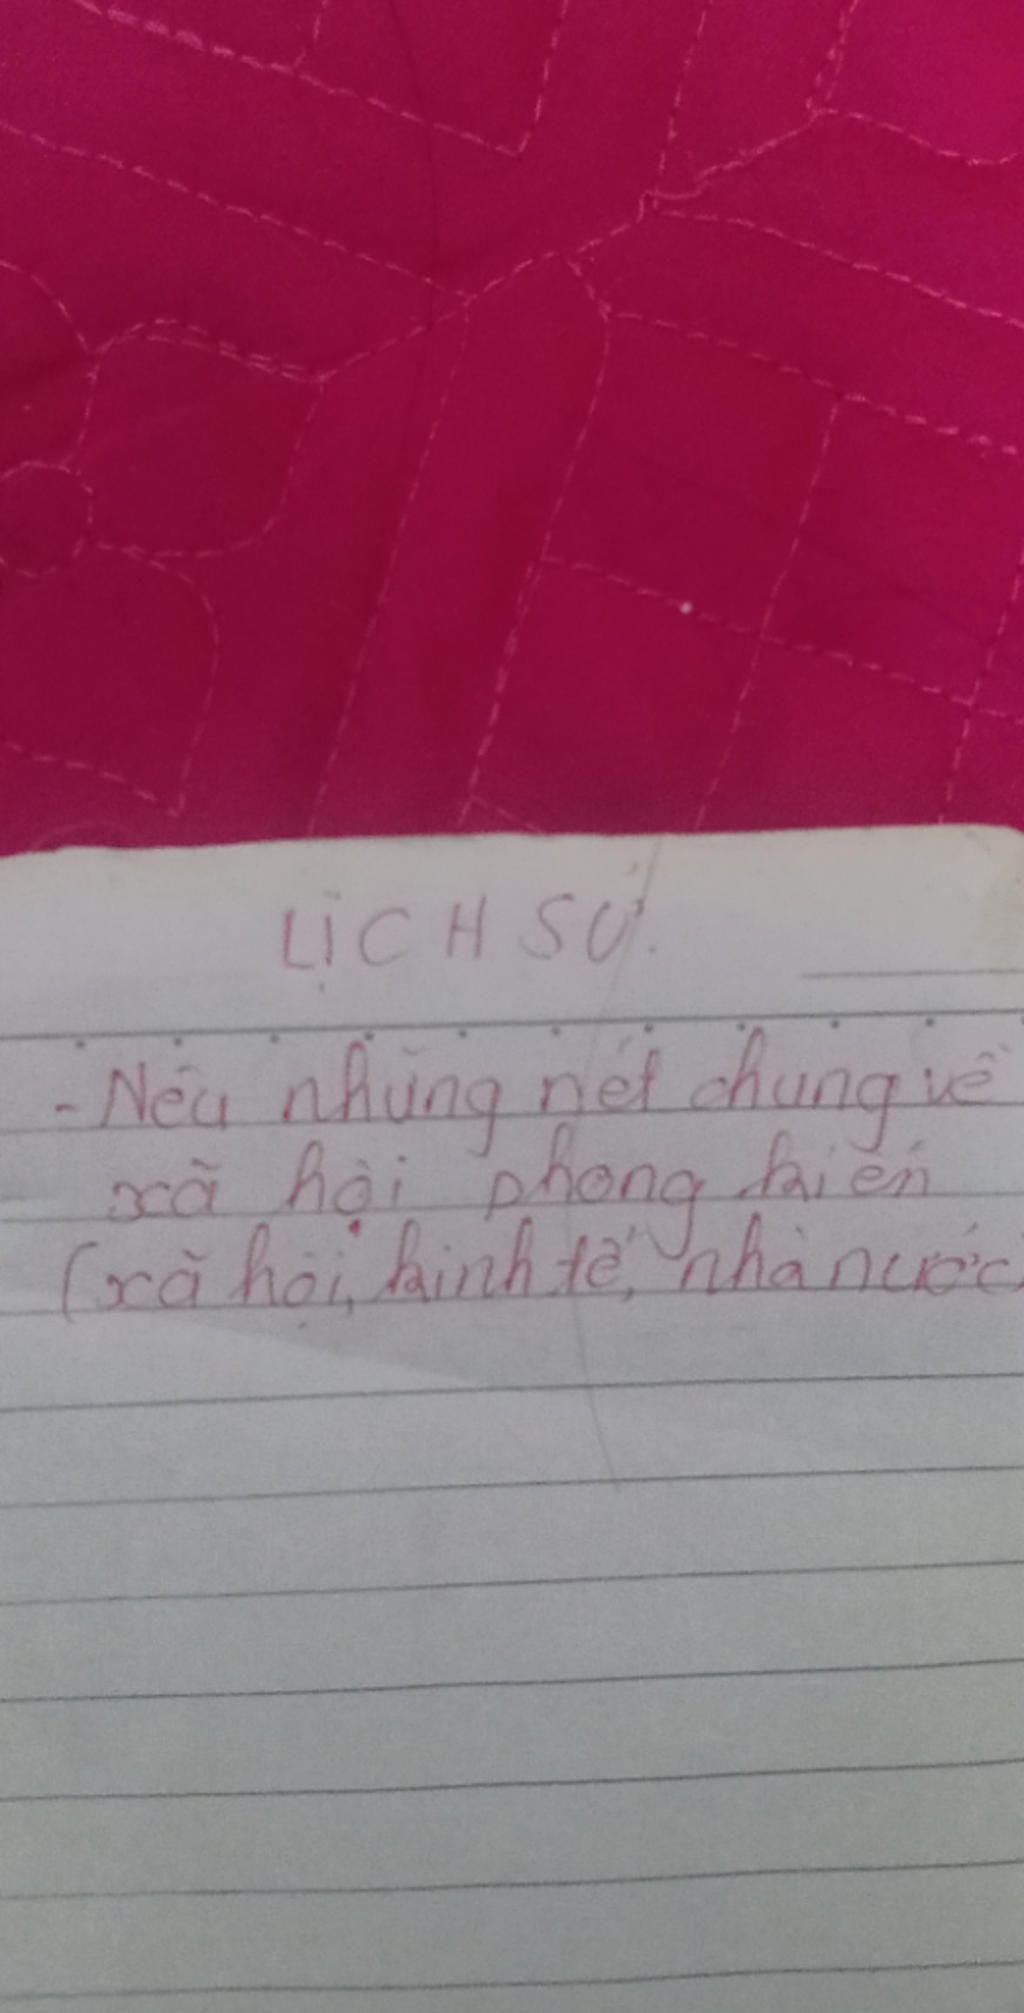 LỊCH SỬ.
- Nêu những nét chung về
xã hội phong kiến
(xã hội, kinh tế, nhà nước)